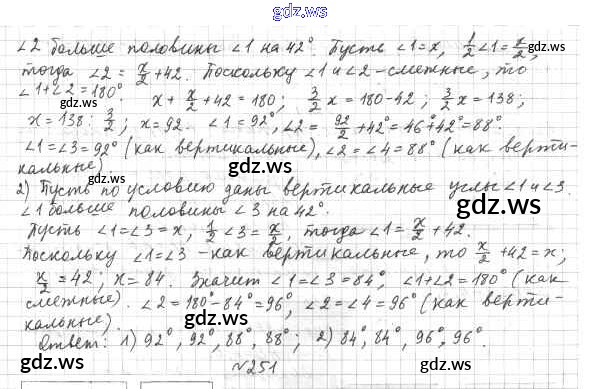 gdz.ws
∠2 больше половины ∠1 на 42°. Пусть ∠1=x, 1/2 ∠1 = x/2,
тогда ∠2 = x/2 + 42. Поскольку ∠1 и ∠2 - смежные, то
∠1+∠2=180°. x + x/2 + 42 = 180, 3/2 x = 180-42; 3/2 x = 138;
x = 138 : 3/2; x = 92. ∠1 = 92°, ∠2 = 92/2 + 42° = 46°+42° = 88°.
∠1=∠3=92° (как вертикальные), ∠2=∠4=88° (как верти-
кальные)
2) Пусть по условию даны вертикальные углы ∠1 и ∠3.
∠1 больше половины ∠3 на 42°.
Пусть ∠1=∠3=x, 1/2 ∠3 = x/2, тогда ∠1 = x/2 + 42.
Поскольку ∠1=∠3 - как вертикальные, то x/2 + 42 = x;
x/2 = 42; x = 84. Значит ∠1=∠3=84°, ∠1+∠2=180° (как
смежные). ∠2 = 180°-84°=96°, ∠2=∠4=96° (как верти-
кальные).
Ответ: 1) 92°, 92°, 88°, 88°; 2) 84°, 84°, 96°, 96°.
№251
gdz.ws
gdz.ws
gdz.ws
gdz.ws
gdz.ws
gdz.ws
gdz.ws
gdz.ws
gdz.ws
gdz.ws
gdz.ws
gdz.ws